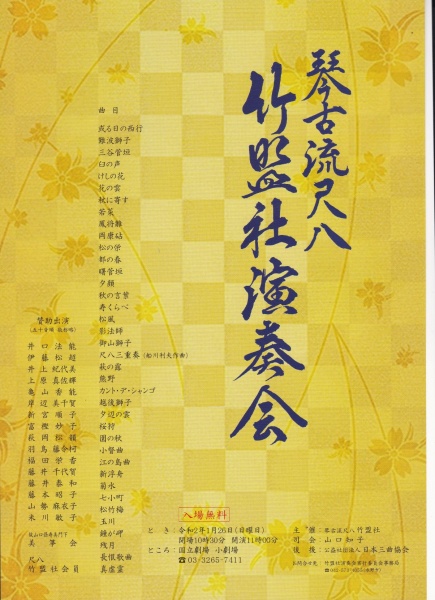 琴古流尺八
竹盟社演奏会
曲目
或る日の西行
難波獅子
三谷菅垣
臼の声
けしの花
花の雲
杖に寄す
若菜
鳳将雛
岡康砧
松の栄
都の春
曙菅垣
夕顔
秋の言葉
寿くらべ
松風
影法師
御山獅子
尺八三重奏(船川利夫作曲)
萩の露
熊野
カント・デ・シャンゴ
越後獅子
夕辺の雲
桜狩
園の秋
小督曲
江の島曲
新浮舟
菊水
七小町
松竹梅
玉川
鐘が岬
残月
長恨歌曲
真虚霊
賛助出演
(五十音順 敬称略)
井口法能
伊藤松超
井上紀代美
上原真佐輝
亀山香能
岸辺美千賀
新宮順子
富樫妙子
萩岡松韻
羽鳥藤令柯
福田栄香
藤井千代賀
藤井泰和
藤本昭子
山勢麻衣子
米川敏子
美筝会
尺八
竹盟社会員
入場無料
とき:令和2年1月26日(日曜日)
開場10時30分 開演11時00分
ところ:国立劇場 小劇場
☎03-3265-7411
主催:琴古流尺八竹盟社
司会:山口和子
後援:公益社団法人日本三曲協会